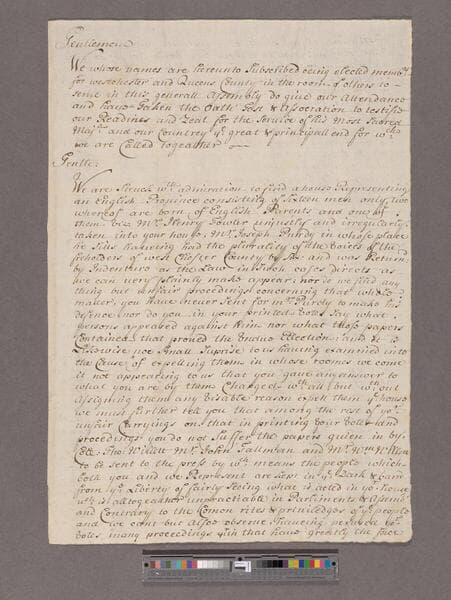 Gentlemen
We whose names are hereunto Subscribed being elected memb.rs
for westchester and Queens County in the room of others to
serve in this generall Assembly do give our Attendance
and have taken the Oath Test & Assocration to testifie
our Readines and Zeal for the Service of his Most Sacred
Maj.ty and our Countrey y.e great & principall end for w.ch
we are Called togeather
Gentle:
We are Struck w.th admiration to find a house Representing
an English Province consisting of Sixteen men only, two
whereof are born of English Parents and one of
them viz M.r Henry Fowler unjustly and irregularly
taken into your house M.r Joseph Purdy in whose place
he sitts haveing had the plurality of the Voices of the
freholders of west Chester County by the and was Return
by Indentures as the Law in such cases directs as
we can very plainly make appear; nor do we find any
thing but unfair proceedings concerning that whole
matter, you have never Sent for m.r Purdy to make his
defence nor do you in your printed Votes say what
persons appeared against him nor what those papers
Contained that proved the Undue Ellection and it is
Likewise no Small Suprise to us haveing examined into
the Cause of expelling them in whose rooms we come
it not appearing to us that you gave any answer to
what you are by them Charged w.th all but w.th out
Assigning them any Visable reason expell them y.e house
we must further tell you that among the rest of yo.r
unfair Carryings on that in printing your Votes and
procedings you do not Suffer the papers given in by
Tho: Willett M.r John Tallman and M.r W.m Willett
to be sent to the press by w.ch means the people which
both you and we Represent are kept in y.e Dark & bar'd
from y.e Liberty of fairly seing what is acted in yo.r house
w.ch is alltogeather unpractiable in Parliments & Assemb
and Contrary to the Comon rites & priviledges of y.e people
and we cant but allso observe haveing perused yo.r
Votes many proceedings y.rin that have greatly the face